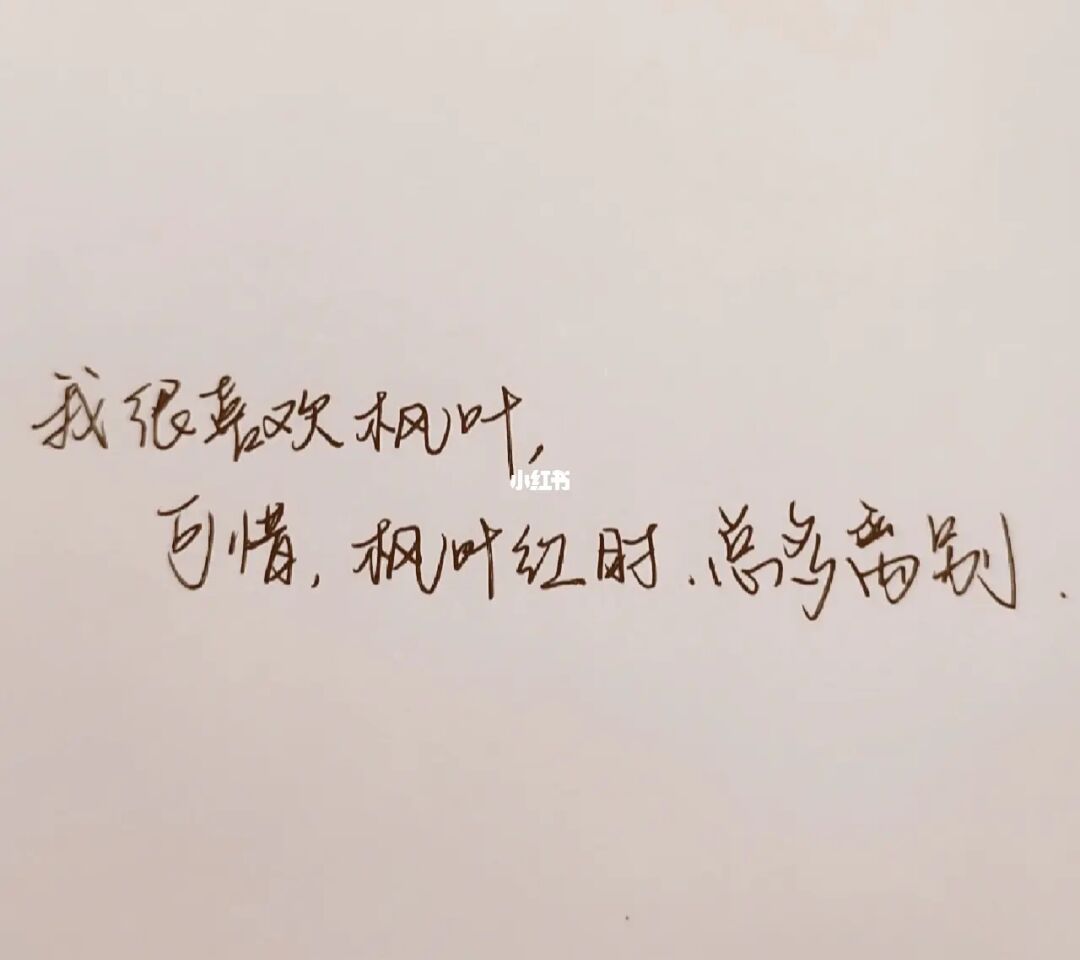 我很喜欢枫叶,
小红书
可惜,枫叶红时.总多离别.